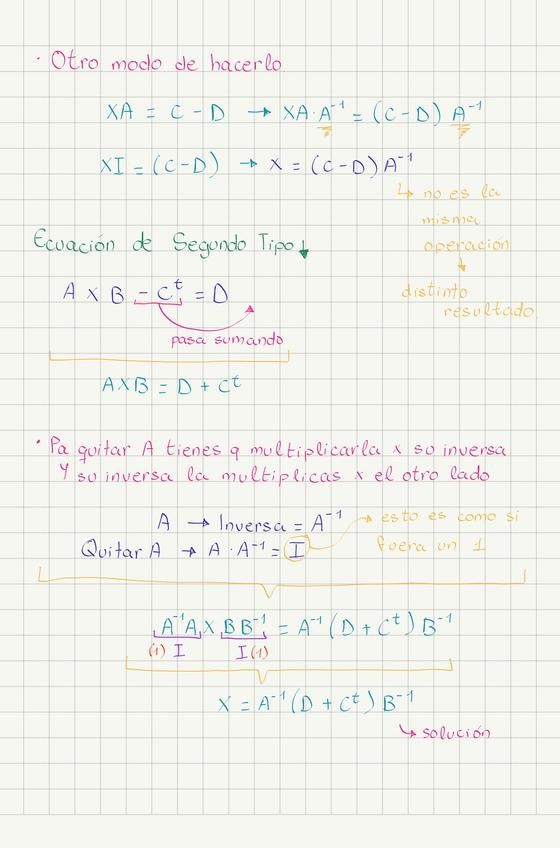 · Otro modo de hacerlo.
XA = C - D → XA·A⁻¹ = (C-D) A⁻¹
XI = (C-D) → X = (C-D) A⁻¹
↳ no es la
misma
operacion
↓
distinto
resultado
Ecuación de Segundo Tipo ↓
A X B - Cᵗ = D
pasa sumando
AXB = D + Cᵗ
· Pa quitar A tienes q multiplicarla x su inversa
Y su inversa la multiplicas x el otro lado
A → Inversa = A⁻¹
Quitar A → A · A⁻¹ = I
→ esto es como si
fuera un 1
A⁻¹A X B B⁻¹ = A⁻¹ (D + Cᵗ) B⁻¹
(1) I I (1)
X = A⁻¹ (D + Cᵗ) B⁻¹
↳ solución